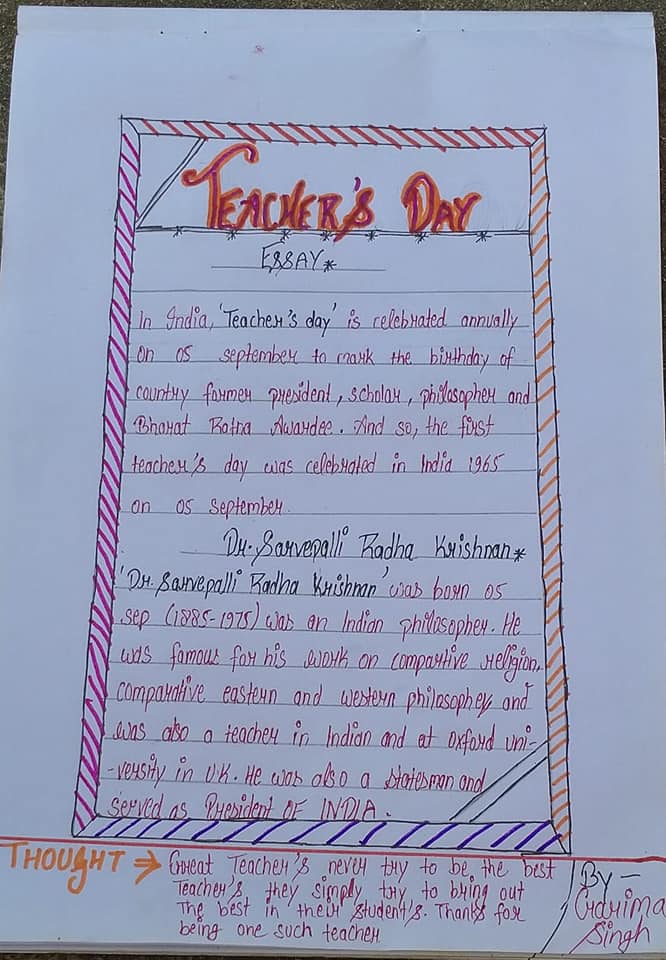 TEACHER'S DAY
ESSAY*
In India, 'Teacher's day' is celebrated annually
on 05 september to mark the birthday of
country former president, scholar, philosopher and
Bharat Ratna Awardee. And so, the first
teacher's day was celebrated in India 1965
on 05 September
Dr. Sarvepalli Radha Krishnan*
'Dr. Sarvepalli Radha Krishnan' was born 05
sep (1885-1975) was an Indian philosopher. He
was famous for his work on compartive religion,
comparative eastern and western philosophey and
was also a teacher in Indian and at oxford uni-
-versity in UK. He was also a statesman and
served as President OF INDIA.
THOUGHT → Great Teacher's never try to be the best
Teacher's they simply try to bring out
The best in their student's. Thanks for
being one such teacher
By -
Garima
Singh